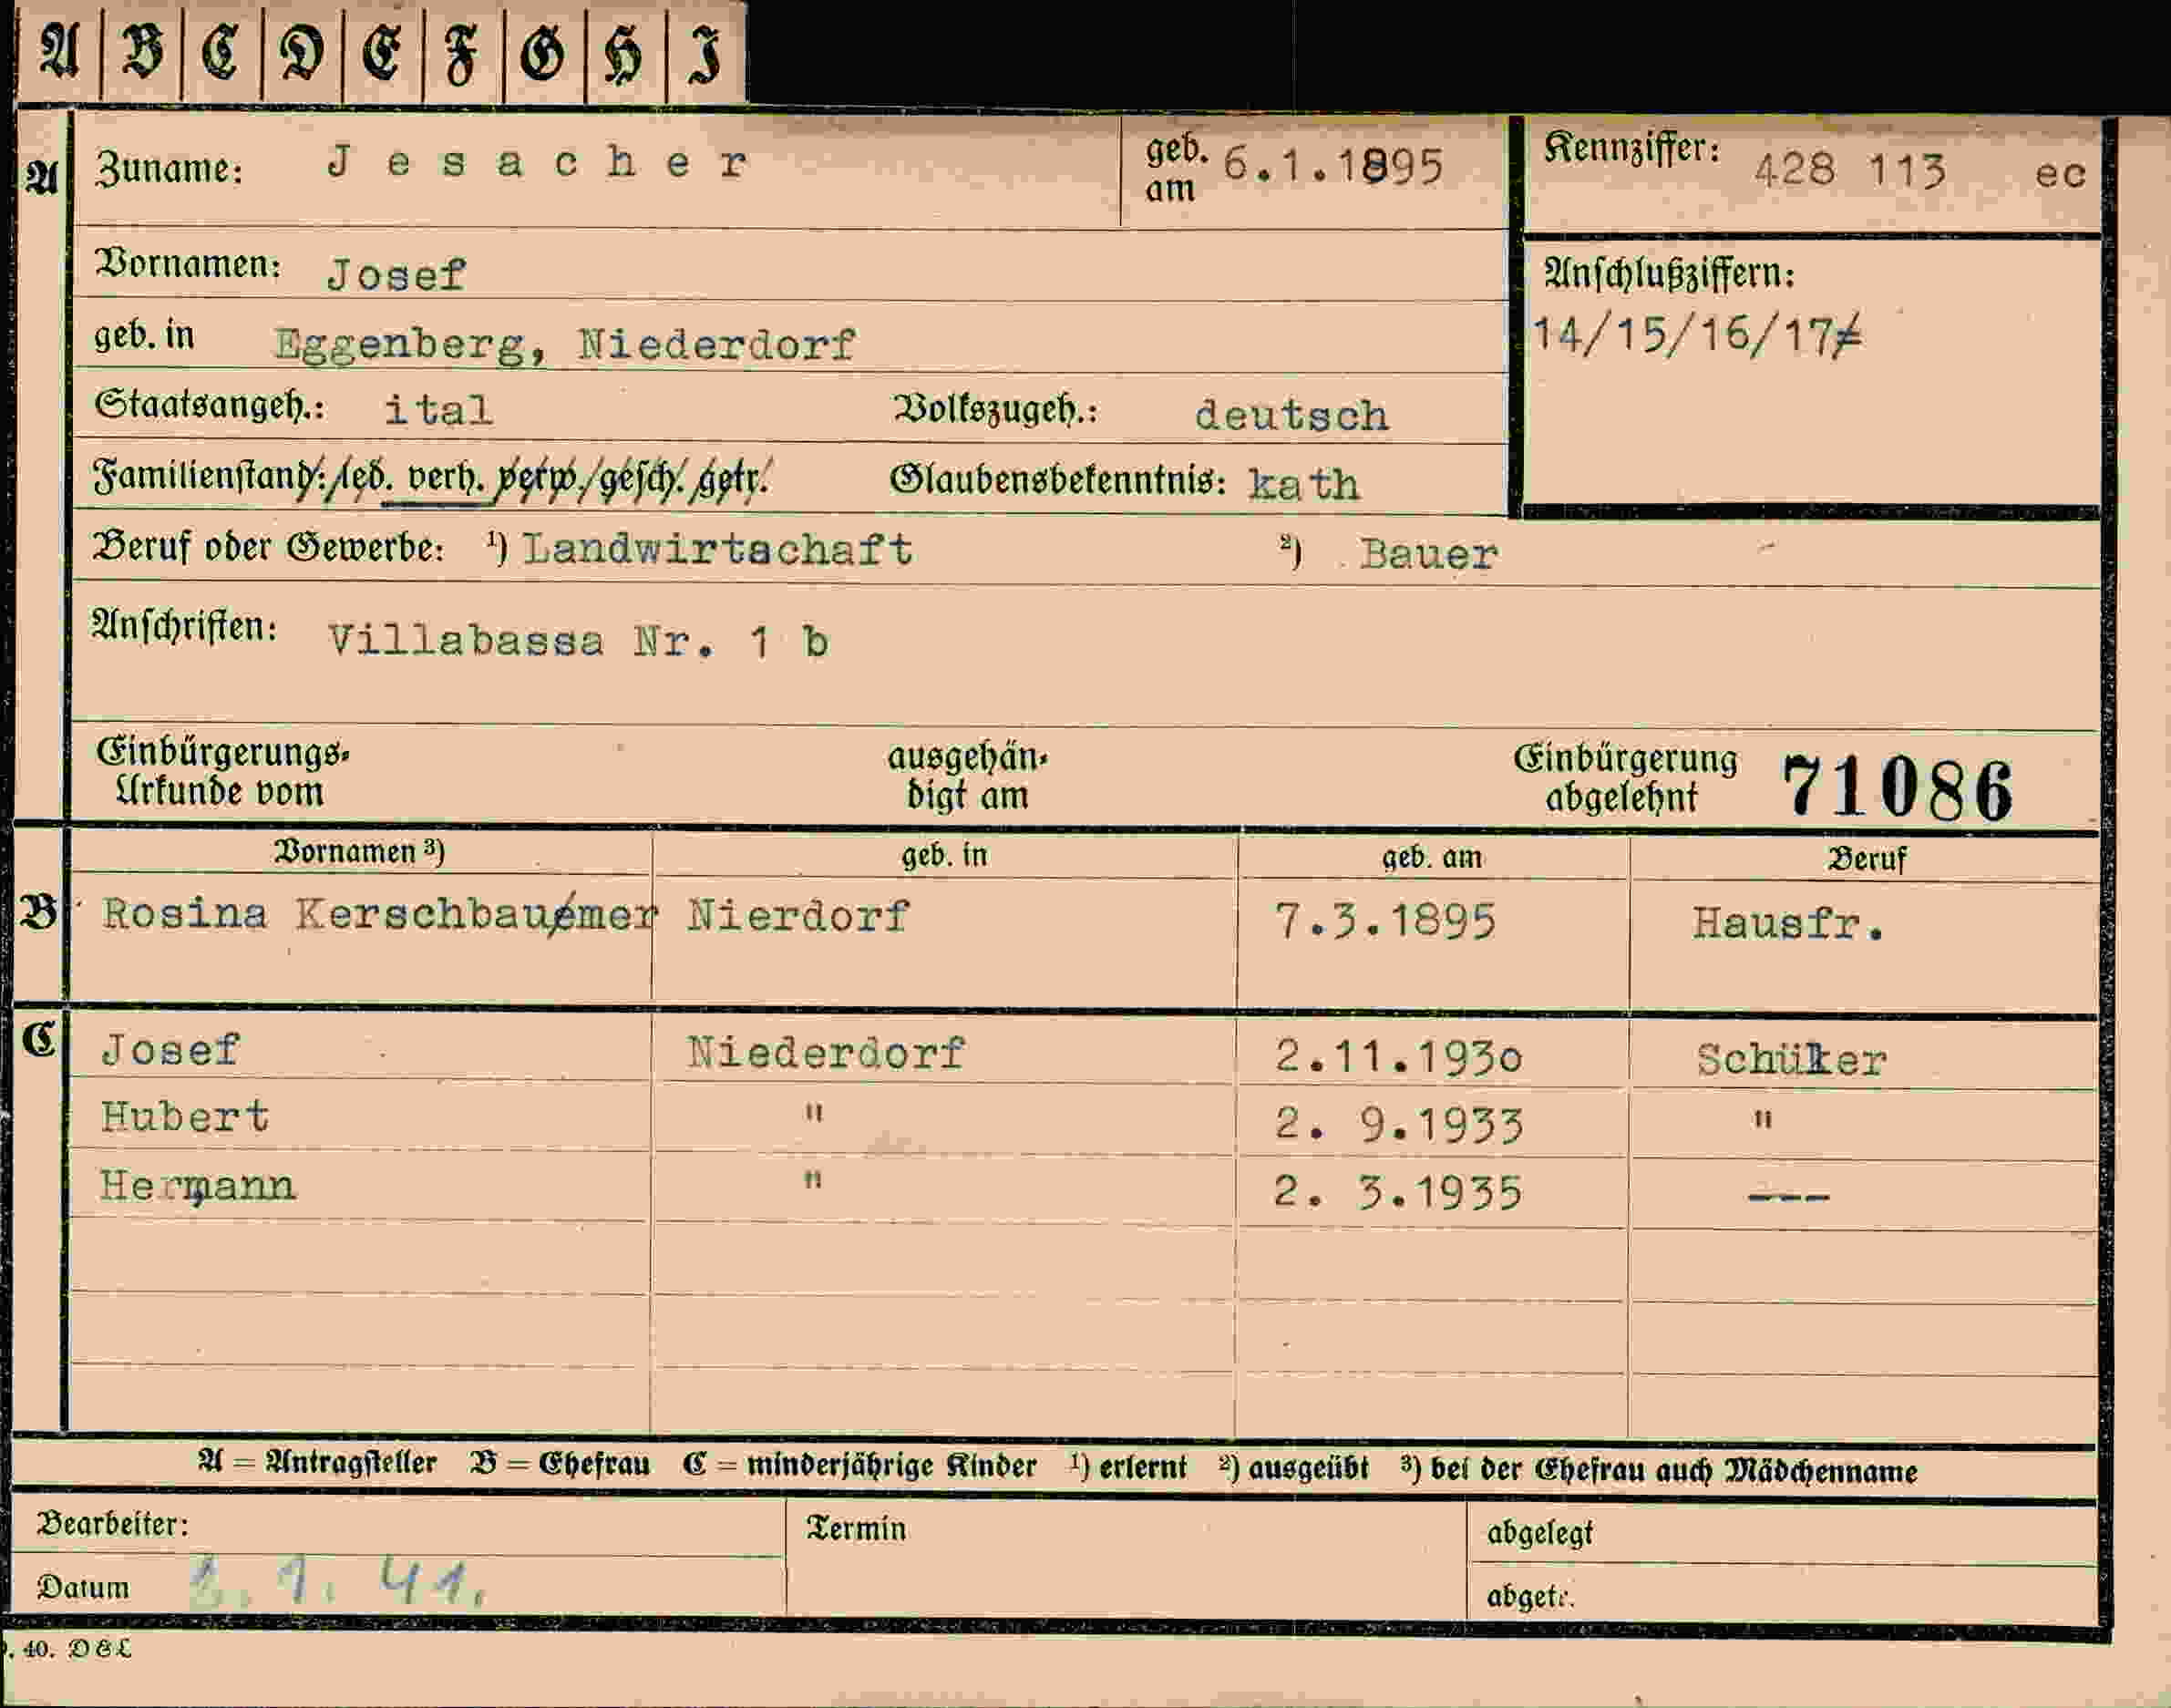 A B C D E F G H I
A Zuname: Jesacher geb. am 6.1.1895 Kennziffer: 428 113 ec
Vornamen: Josef
Anschlußziffern:
geb. in Eggenberg, Niederdorf
14/15/16/17
Staatsangeh.: ital Volkszugeh.: deutsch
Familienstand: led. verh. verw. gesch. getr. Glaubensbekenntnis: kath
Beruf oder Gewerbe: ¹) Landwirtschaft ²) Bauer
Anschriften: Villabassa Nr. 1 b
Einbürgerungs- ausgehän- Einbürgerung 71086
Urkunde vom digt am abgelehnt
Vornamen ³) geb. in geb. am Beruf
B Rosina Kerschbaumer Nierdorf 7.3.1895 Hausfr.
C Josef Niederdorf 2.11.1930 Schüler
Hubert " 2. 9.1933 "
Hermann " 2. 3.1935 ---
A = Antragsteller B = Ehefrau C = minderjährige Kinder ¹) erlernt ²) ausgeübt ³) bei der Ehefrau auch Mädchenname
Bearbeiter: Termin abgelegt
Datum 1. 41. abgetr.
. 40. DEL